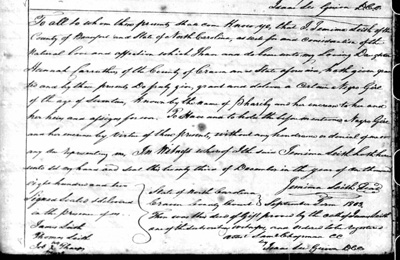 Isaac Le Guion D.C.C.
To all to whom these presents shall come Know ye, that I Jemima Smith of the
County of Beaufort and State of North Carolina, as well for and in consideration of the
Natural Love and affection which I have and do bear unto my Loving Daughter
Hannah of the County of Craven and State aforesaid, hath given granted
and by these presents do freely give, grant and deliver a Certain Negro Girl
of the age of Seventeen, known by the name of and her increase to her and
her heirs and assigns forever. To Have and to hold the before mentioned Negro Girl
and her increase by virtue of these presents, without any hindrance or denial of me or
any one representing me. In Witness whereof I the said Jemima Smith hath hereunto
set my hand and seal the twenty third of December in the year of our Lord
eight hundred and two
Jemima Smith Seal
Signed Sealed & delivered
in the presence of us
James Smith
Thomas Smith
State of North Carolina
Craven County Court September Term 1803
Then was this deed of Gift proved by the oath of James Smith
one of the subscribing witnesses and ordered to be registered
Attest Saml Chapman CC
by Isaac Le Guion D.C.C.